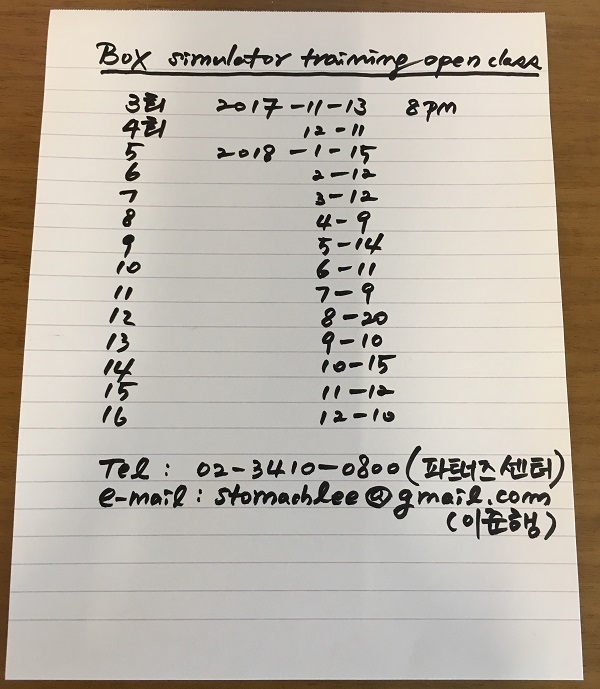 Box simulator training open class
3회 2017-11-13 8pm
4회 12-11
5 2018-1-15
6 2-12
7 3-12
8 4-9
9 5-14
10 6-11
11 7-9
12 8-20
13 9-10
14 10-15
15 11-12
16 12-10
Tel : 02-3410-0800 (파트너즈센터)
e-mail : stomachlee@gmail.com
(이준행)